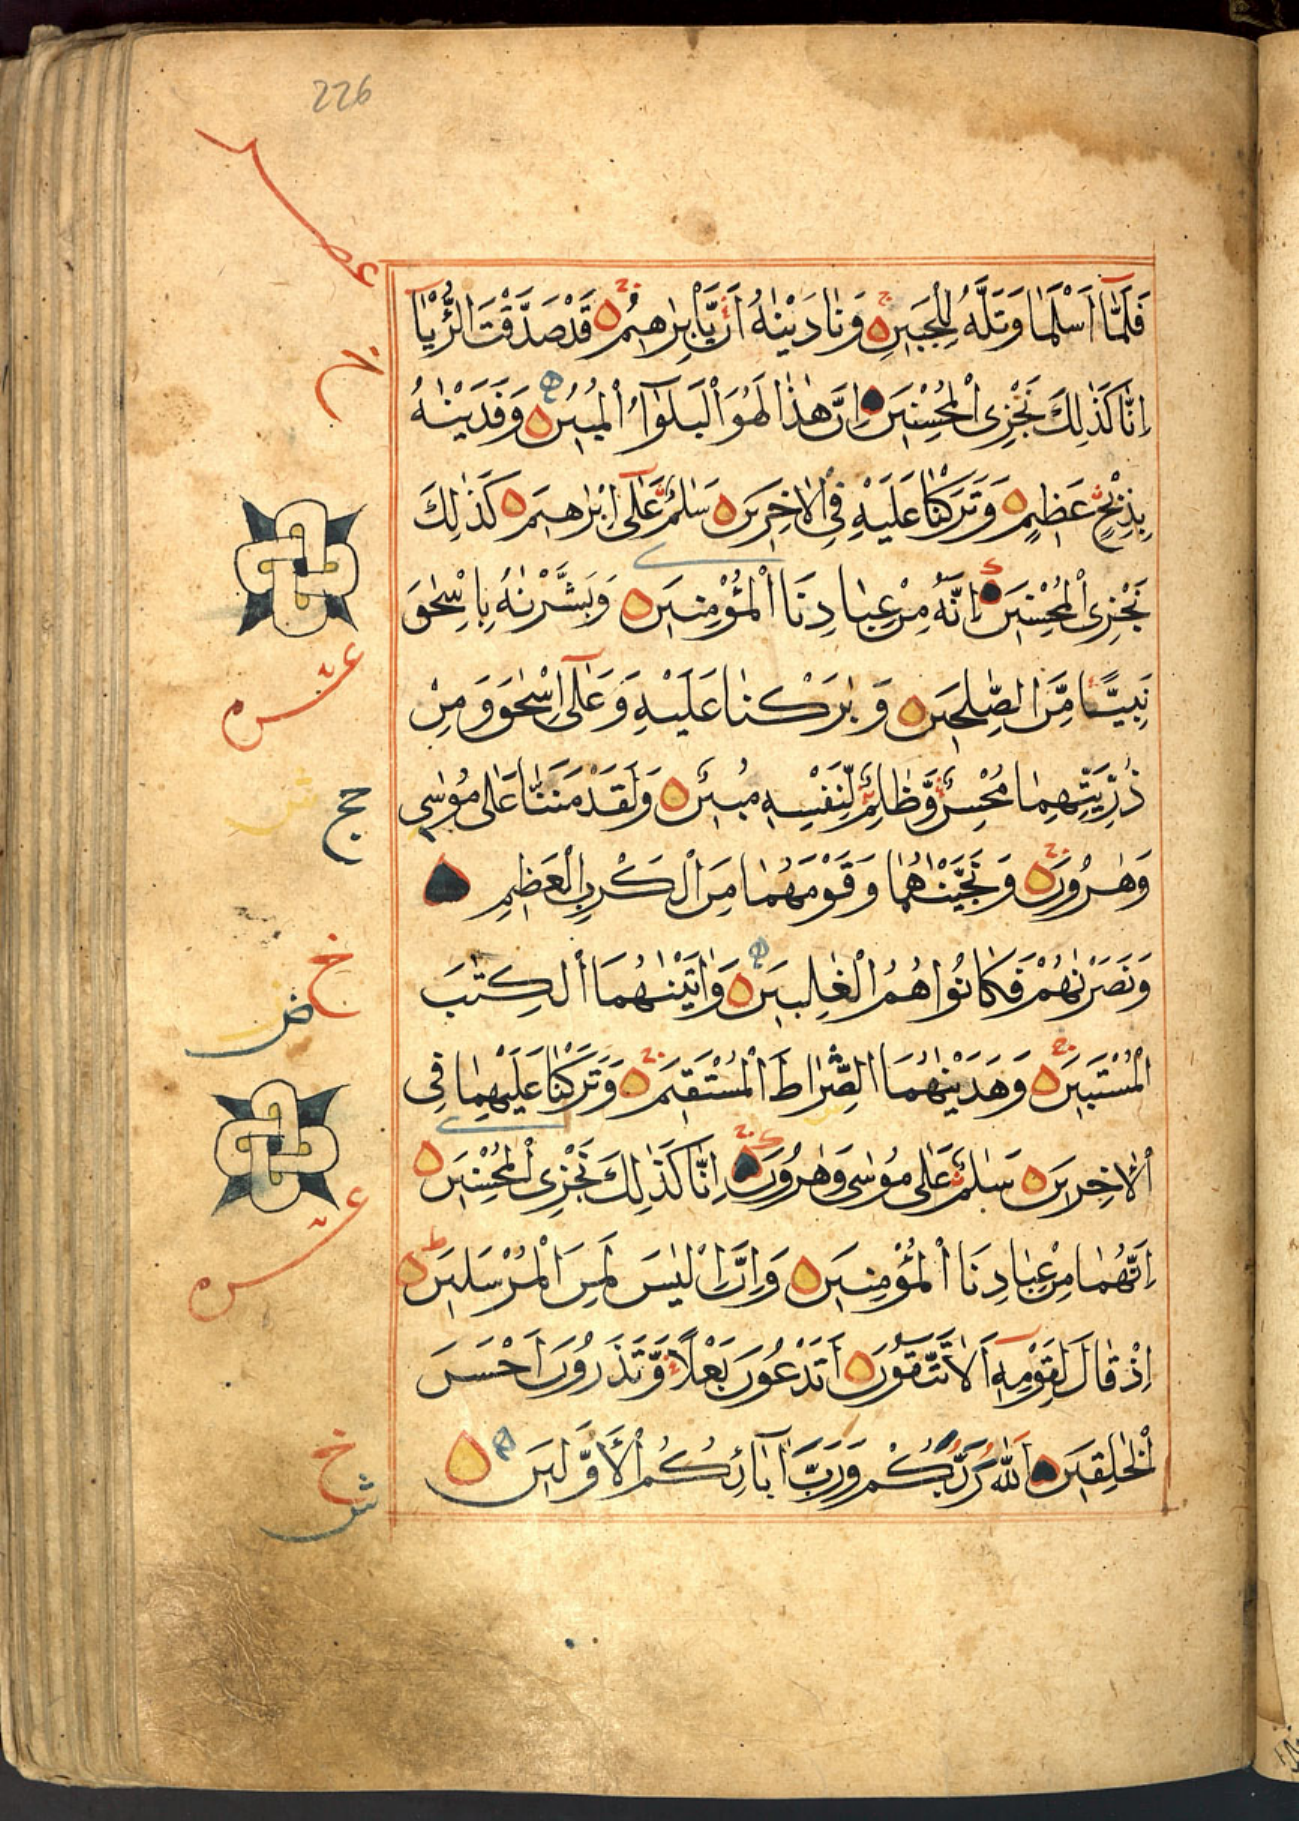 226
فَلَمَّآ اَسْلَمَا وَتَلَّهُ لِلْجَبِينِ وَنَادَيْنٰهُ اَنْ يَّآاِبْرٰهِيمُ قَدْ صَدَّقْتَ الرُّءْيَآ
اِنَّا كَذٰلِكَ نَجْزِى الْمُحْسِنِينَ اِنَّ هٰذَا لَهُوَ الْبَلٰٓؤُا الْمُبِينُ وَفَدَيْنٰهُ
بِذِبْحٍ عَظِيمٍ وَتَرَكْنَا عَلَيْهِ فِى الْاٰخِرِينَ سَلٰمٌ عَلٰٓى اِبْرٰهِيمَ كَذٰلِكَ
نَجْزِى الْمُحْسِنِينَ اِنَّهُ مِنْ عِبَادِنَا الْمُؤْمِنِينَ وَبَشَّرْنٰهُ بِاِسْحٰقَ
نَبِيًّا مِّنَ الصّٰلِحِينَ وَبٰرَكْنَا عَلَيْهِ وَعَلٰٓى اِسْحٰقَ وَمِنْ
ذُرِّيَّتِهِمَا مُحْسِنٌ وَّظَالِمٌ لِّنَفْسِهِ مُبِينٌ وَلَقَدْ مَنَنَّا عَلٰى مُوْسٰى
وَهٰرُونَ وَنَجَّيْنٰهُمَا وَقَوْمَهُمَا مِنَ الْكَرْبِ الْعَظِيمِ
وَنَصَرْنٰهُمْ فَكَانُوا هُمُ الْغٰلِبِينَ وَاٰتَيْنٰهُمَا الْكِتٰبَ
الْمُسْتَبِينَ وَهَدَيْنٰهُمَا الصِّرَاطَ الْمُسْتَقِيمَ وَتَرَكْنَا عَلَيْهِمَا فِى
الْاٰخِرِينَ سَلٰمٌ عَلٰى مُوسٰى وَهٰرُونَ اِنَّا كَذٰلِكَ نَجْزِى الْمُحْسِنِينَ
اِنَّهُمَا مِنْ عِبَادِنَا الْمُؤْمِنِينَ وَاِنَّ اِلْيَاسَ لَمِنَ الْمُرْسَلِينَ
اِذْ قَالَ لِقَوْمِهِ اَلَا تَتَّقُونَ اَتَدْعُونَ بَعْلًا وَّتَذَرُونَ اَحْسَنَ
الْخٰلِقِينَ اللّٰهُ رَبُّكُمْ وَرَبُّ اٰبَآئِكُمُ الْاَوَّلِينَ